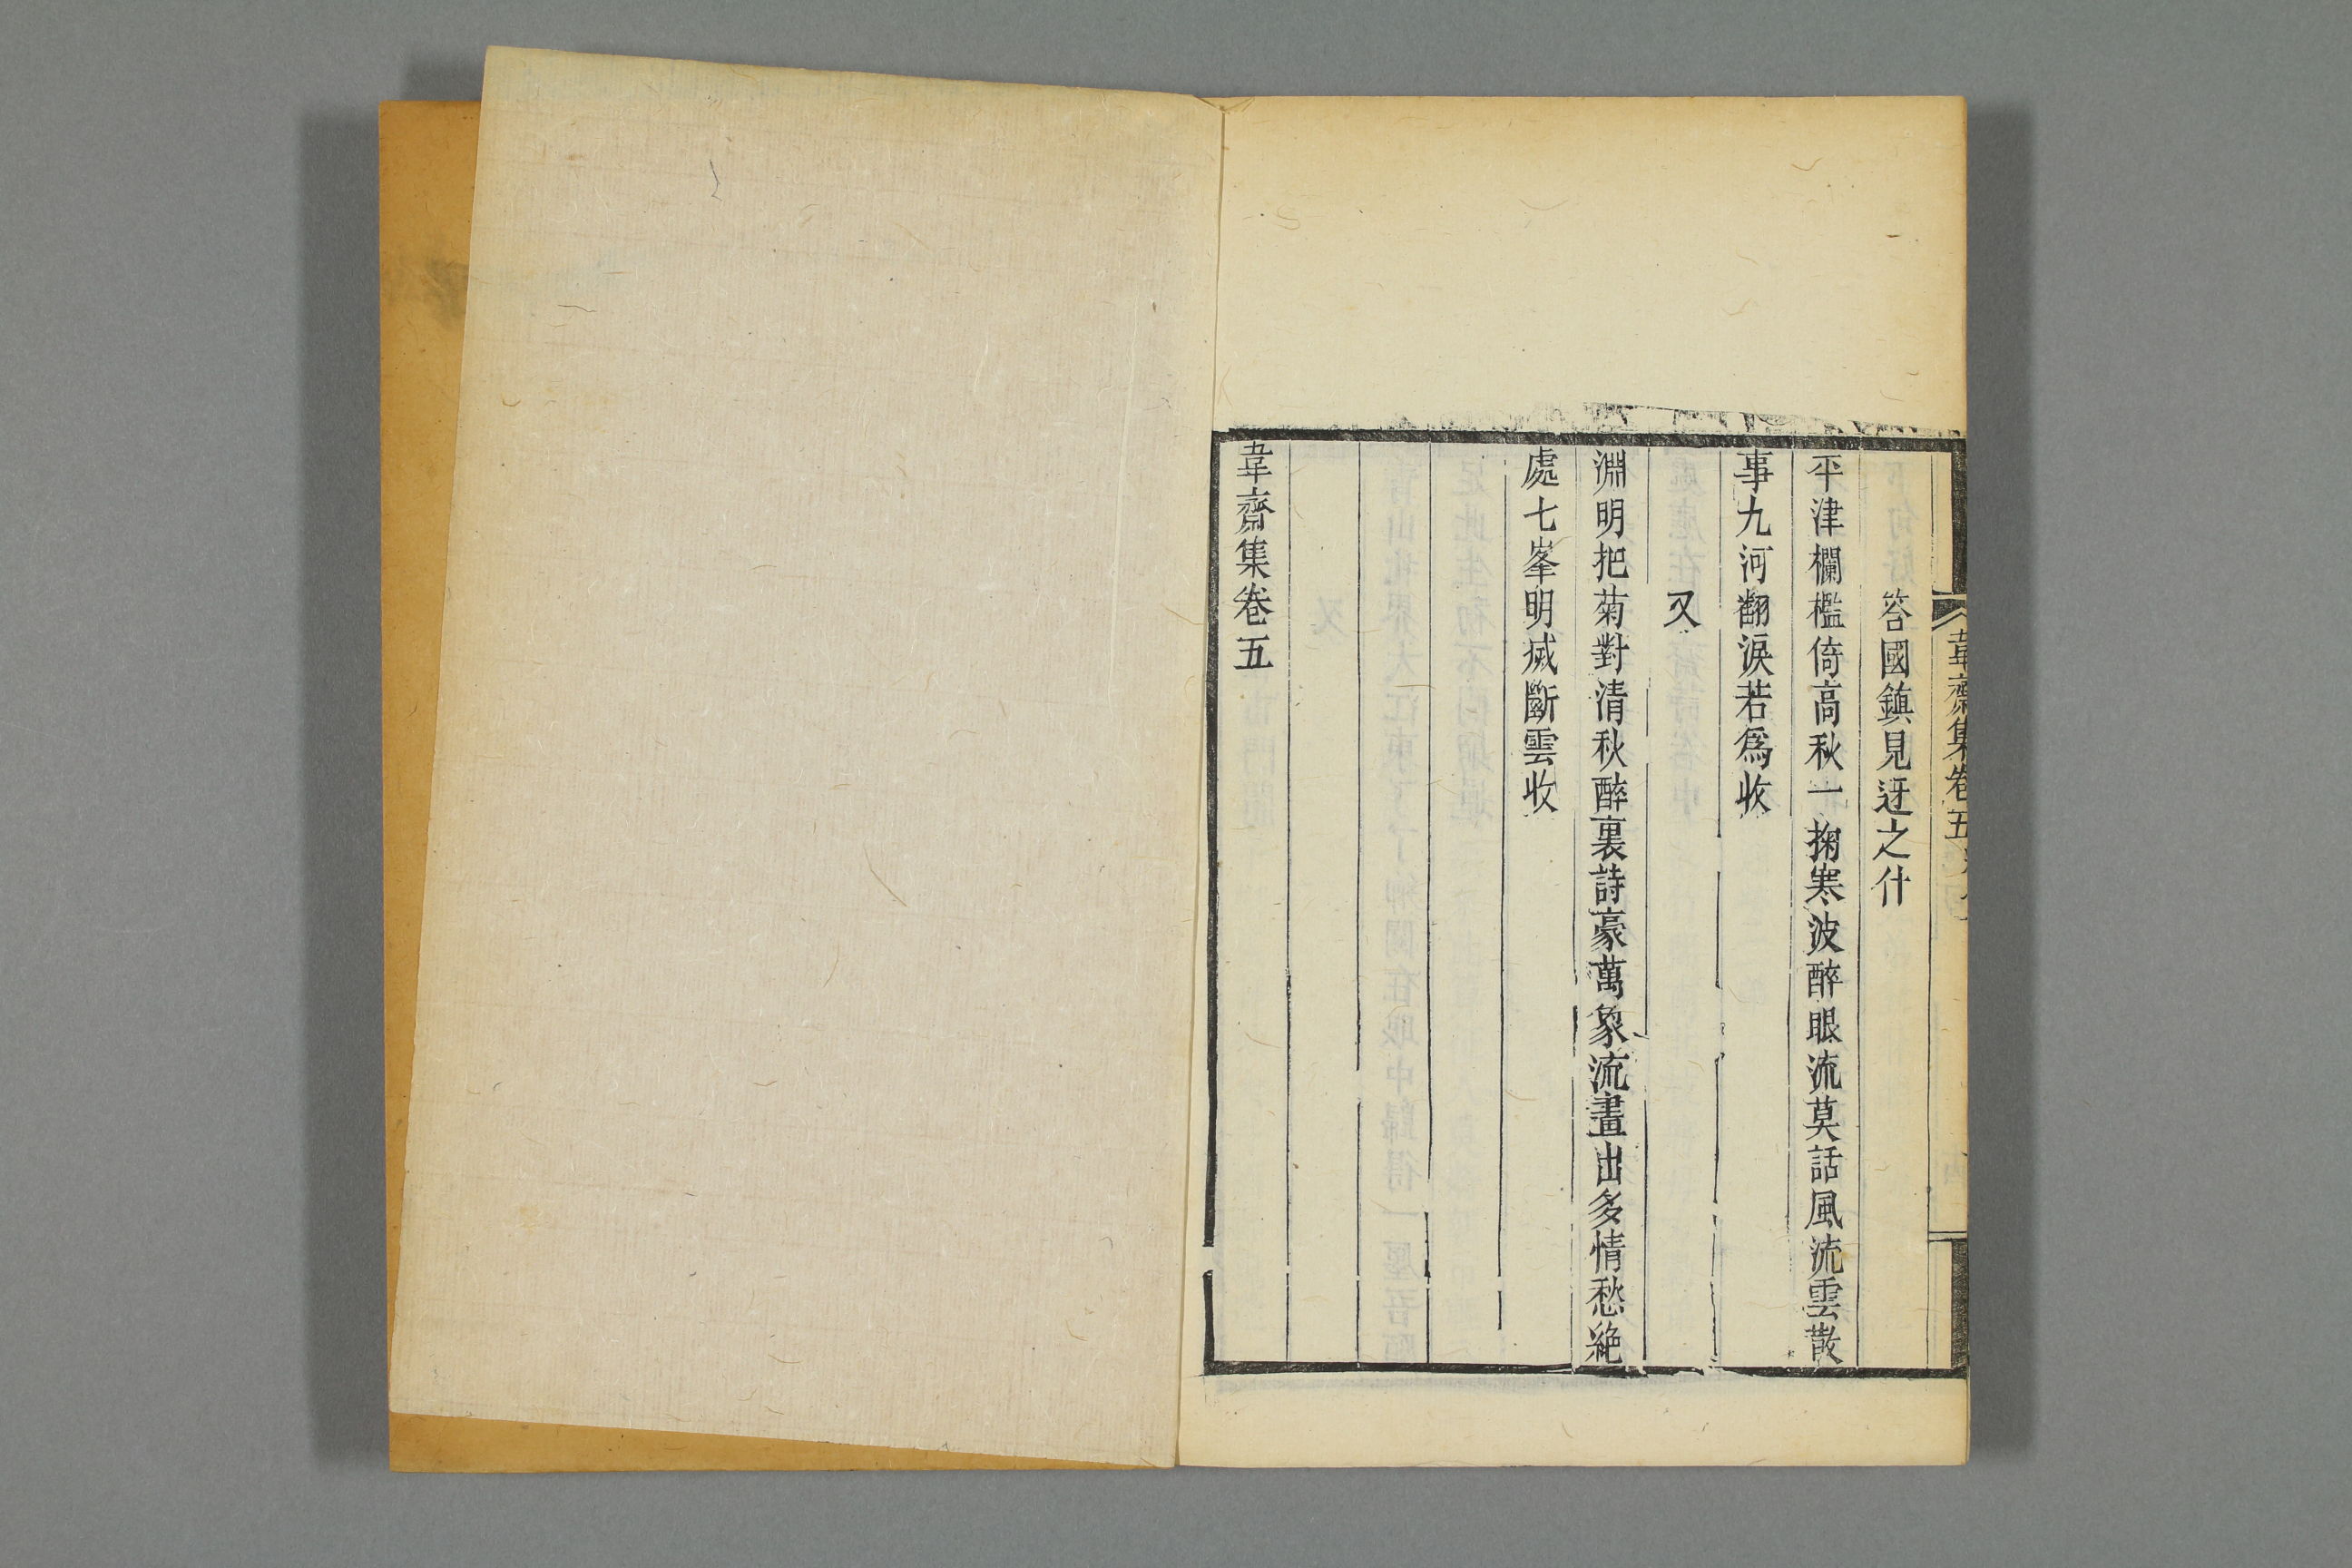 韋齋集卷五
答國鎮見迓之什
平津欄檻倚高秋一掬寒波醉眼流莫話風流雲散
事九河翻淚若爲收
又
淵明把菊對清秋醉裏詩豪萬象流畫出多情愁絶
處七峯明滅斷雲收
韋齋集卷五